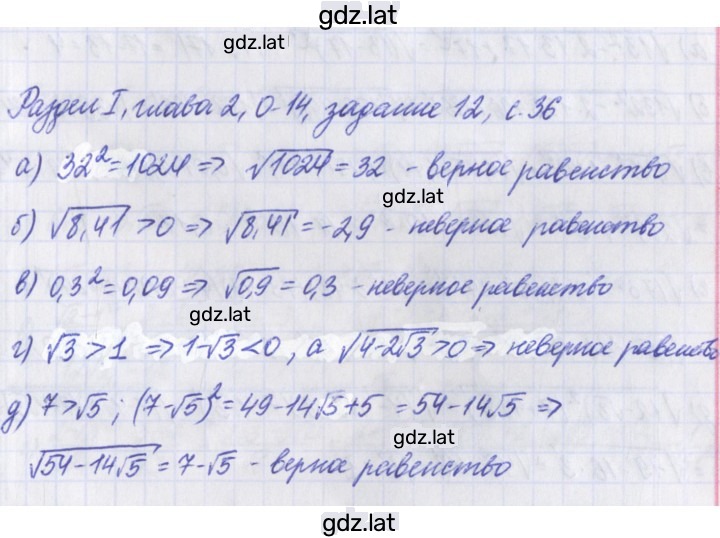 gdz.lat
gdz.lat
Раздел I, глава 2, О-14, задание 12, с. 36
а) 32² = 1024 => √1024 = 32 - верное равенство
gdz.lat
б) √8,41 > 0 => √8,41 = -2,9 - неверное равенство
в) 0,3² = 0,09 => √0,9 = 0,3 - неверное равенство
gdz.lat
г) √3 > 1 => 1-√3 < 0, а √4-2√3 > 0 => неверное равенство
д) 7 > √5; (7-√5)² = 49-14√5+5 = 54-14√5 =>
gdz.lat
√54-14√5 = 7-√5 - верное равенство
gdz.lat